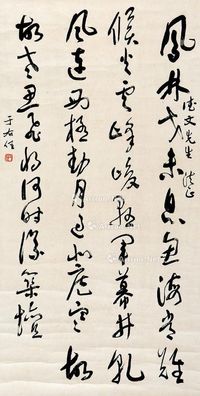 鳳林戈未息魚海常難
候火雲峰峻懸軍幕井乾
風連西極動月過北庭寒故
老思飛將何時議築壇
文先生
于右任